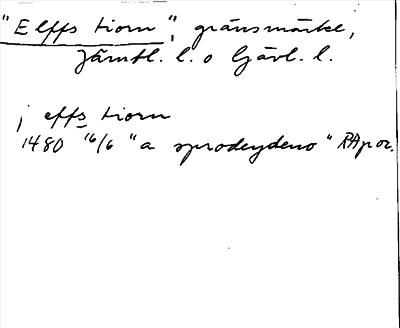 "Elffs tiorn", gränsmärke,
Jämtl. l. o Gävl. l.
j effs tiorn
1480 16/6 "a sprodeydeno" RApor.